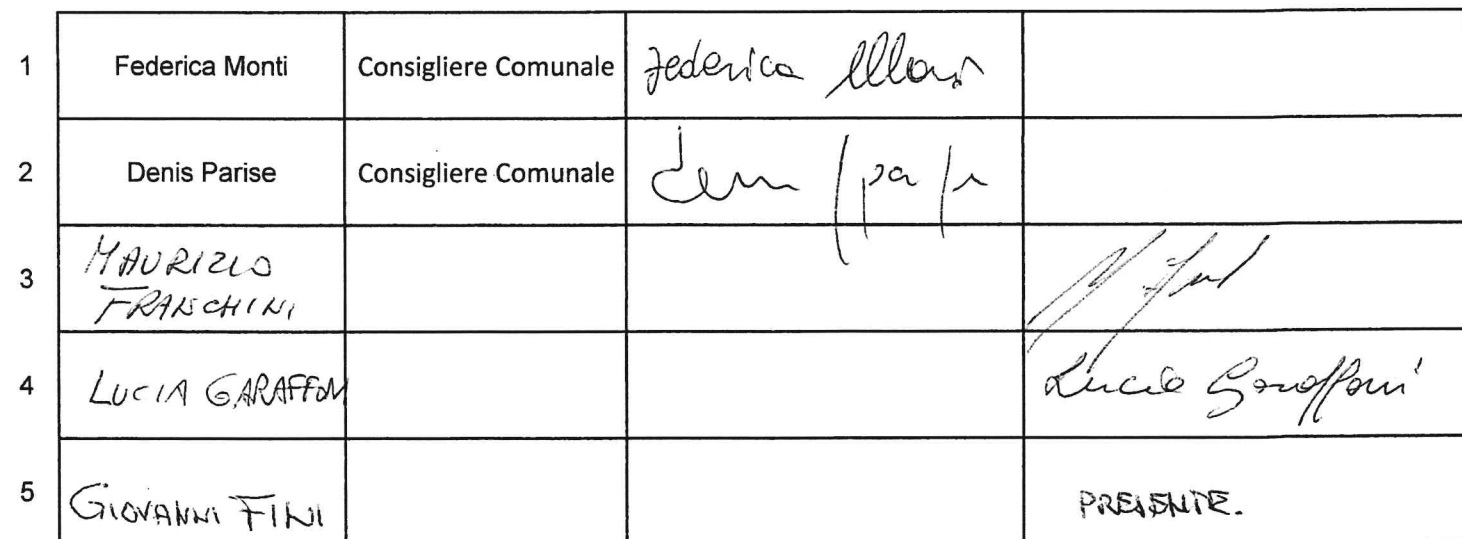 1 Federica Monti Consigliere Comunale Federica Monti
2 Denis Parise Consigliere Comunale
3 MAURIZIO
FRANCHINI
4 LUCIA GARAFFONI Lucia Garaffoni
5 GIOVANNI FINI PRESENTE.